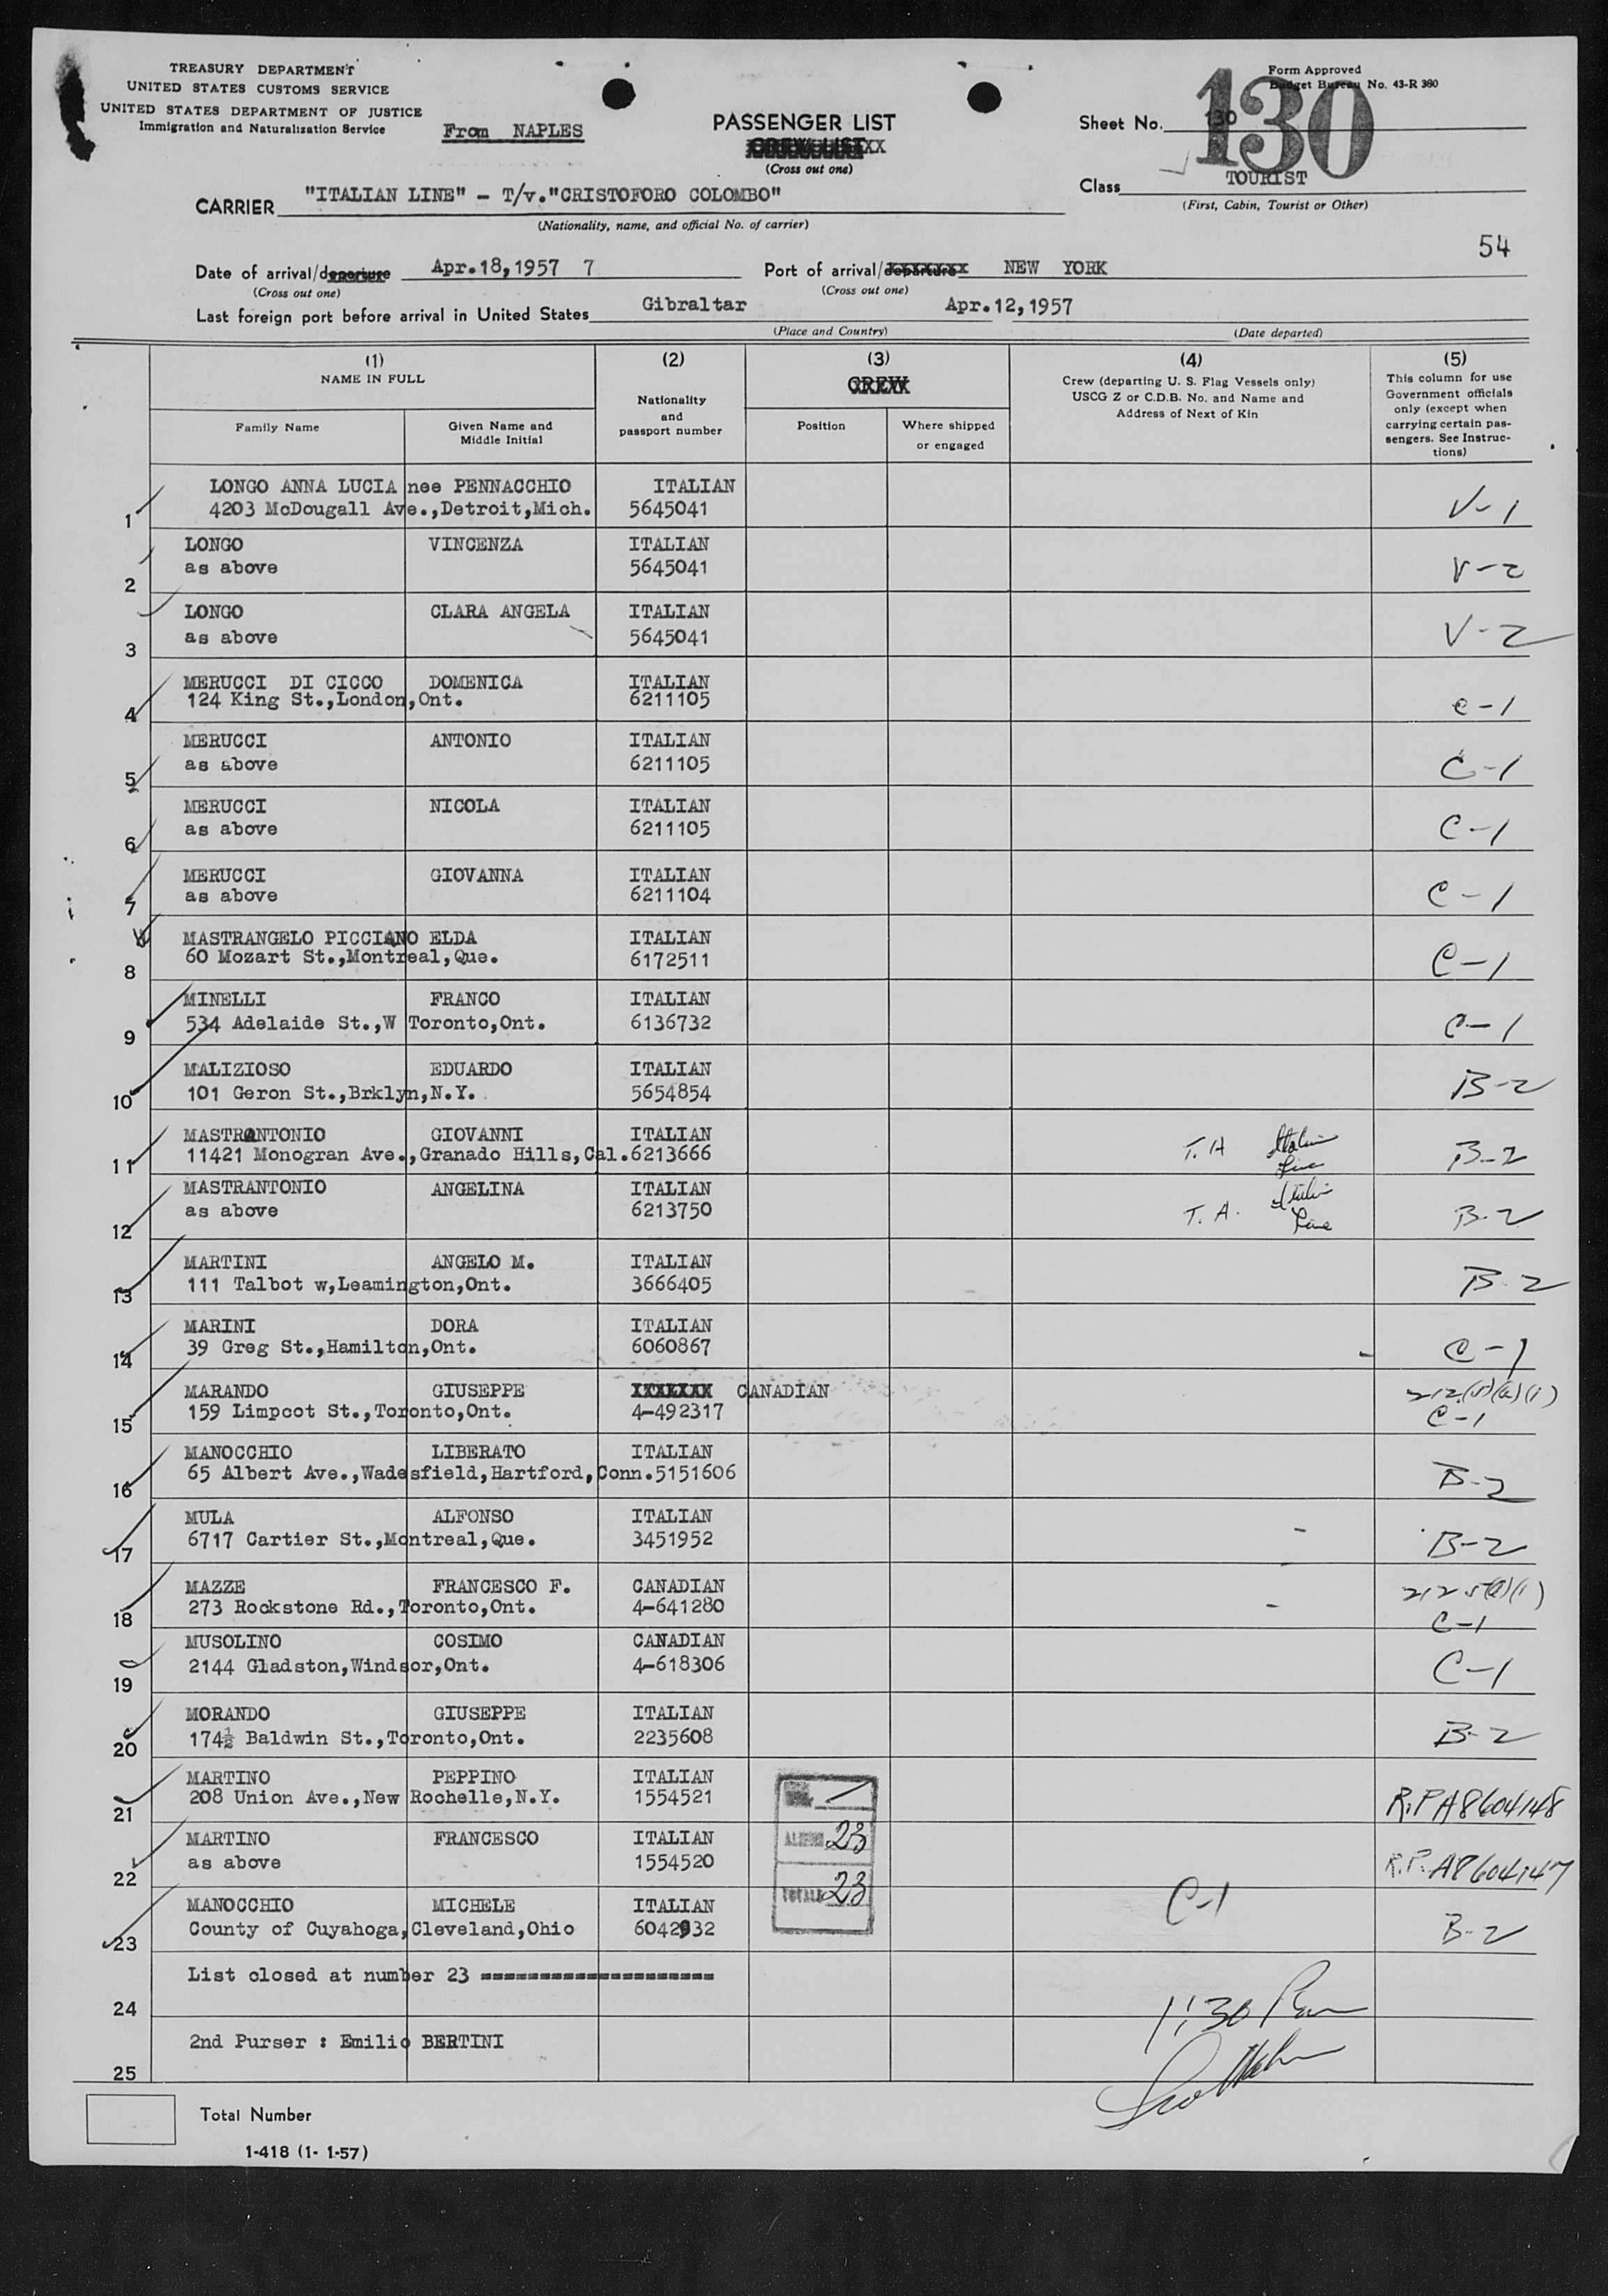 TREASURY DEPARTMENT
UNITED STATES CUSTOMS SERVICE
UNITED STATES DEPARTMENT OF JUSTICE
Immigration and Naturalization Service
From NAPLES
PASSENGER LIST
CREW LIST
(Cross out one)
Form Approved
Budget Bureau No. 43-R 380
Sheet No. 130
130
Class TOURIST
(First, Cabin, Tourist or Other)
CARRIER "ITALIAN LINE" - T/v."CRISTOFORO COLOMBO"
(Nationality, name, and official No. of carrier)
54
Date of arrival/departure Apr.18,1957 7 Port of arrival/departure NEW YORK
(Cross out one) (Cross out one)
Last foreign port before arrival in United States Gibraltar Apr.12,1957
(Place and Country) (Date departed)
(1) (2) (3) (4) (5)
NAME IN FULL
Family Name
Given Name and
Middle Initial
Nationality
and
passport number
CREW
Position
Where shipped
or engaged
Crew (departing U. S. Flag Vessels only)
USCG Z or C.D.B. No. and Name and
Address of Next of Kin
This column for use
Government officials
only (except when
carrying certain pas-
sengers. See Instruc-
tions)
LONGO ANNA LUCIA nee PENNACCHIO ITALIAN
1 4203 McDougall Ave.,Detroit,Mich. 5645041 V-1
LONGO VINCENZA ITALIAN
2 as above 5645041 V-2
LONGO CLARA ANGELA ITALIAN
3 as above 5645041 V-2
MERUCCI DI CICCO DOMENICA ITALIAN
4 124 King St.,London,Ont. 6211105 C-1
MERUCCI ANTONIO ITALIAN
5 as above 6211105 C-1
MERUCCI NICOLA ITALIAN
6 as above 6211105 C-1
MERUCCI GIOVANNA ITALIAN
7 as above 6211104 C-1
MASTRANGELO PICCIANO ELDA ITALIAN
8 60 Mozart St.,Montreal,Que. 6172511 C-1
MINELLI FRANCO ITALIAN
9 534 Adelaide St.,W Toronto,Ont. 6136732 C-1
MALIZIOSO EDUARDO ITALIAN
10 101 Geron St.,Brklyn,N.Y. 5654854 B-2
MASTRANTONIO GIOVANNI ITALIAN
11 11421 Monogran Ave.,Granado Hills,Cal.6213666 T.A Italian Line B-2
MASTRANTONIO ANGELINA ITALIAN
12 as above 6213750 T.A. Italian Line B-2
MARTINI ANGELO M. ITALIAN
13 111 Talbot w,Leamington,Ont. 3666405 B-2
MARINI DORA ITALIAN
14 39 Greg St.,Hamilton,Ont. 6060867 C-1
MARANDO GIUSEPPE XXXXXXX CANADIAN 212(d)(4)(1)
15 159 Limpcot St.,Toronto,Ont. 4-492317 C-1
MANOCCHIO LIBERATO ITALIAN
16 65 Albert Ave.,Wadesfield,Hartford,Conn.5151606 B-2
MULA ALFONSO ITALIAN
17 6717 Cartier St.,Montreal,Que. 3451952 B-2
MAZZE FRANCESCO F. CANADIAN
18 273 Rockstone Rd.,Toronto,Ont. 4-641280 C-1
MUSOLINO COSIMO CANADIAN
19 2144 Gladston,Windsor,Ont. 4-618306 C-1
MORANDO GIUSEPPE ITALIAN
20 174½ Baldwin St.,Toronto,Ont. 2235608 B-2
MARTINO PEPPINO ITALIAN
21 208 Union Ave.,New Rochelle,N.Y. 1554521 R.P A8604148
MARTINO FRANCESCO ITALIAN ALIENS 23
22 as above 1554520 R.P. A8604147
TOTALS 23
MANOCCHIO MICHELE ITALIAN C-1
23 County of Cuyahoga,Cleveland,Ohio 6042932 B-2
List closed at number 23 --------------------
24 1:30 Pm
2nd Purser : Emilio BERTINI
25
Total Number
1-418 (1- 1-57)